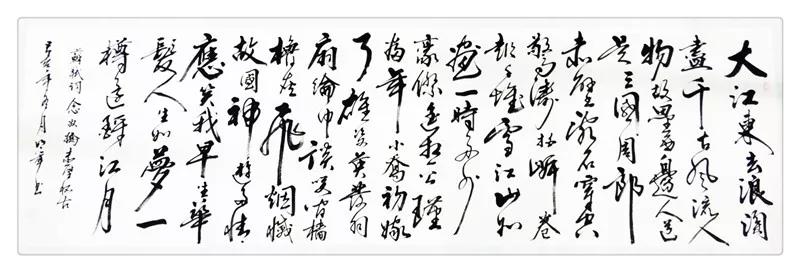 大江東去浪淘
盡千古風流人
物故壘西邊人道
是三國周郎
赤壁亂石穿空
驚濤拍岸卷
起千堆雪江山如
畫一時多少
豪傑遥想公瑾
當年小喬初嫁
了雄姿英發羽
扇綸巾談笑間檣
櫓灰飛烟滅
故國神游多情
應笑我早生華
髮人生如夢一
樽還酹江月
蘇軾詞念奴嬌赤壁懷古
年冬月